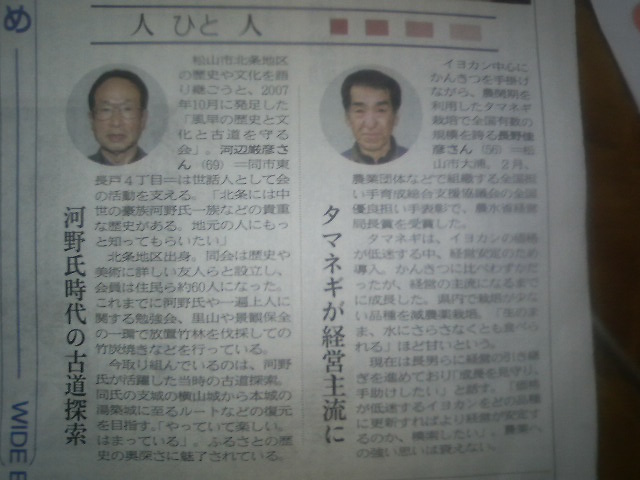 め
WIDE E
人 ひと 人
松山市北条地区
の歴史や文化を語
り継ごうと、2007
年10月に発足した
「風早の歴史と文
化と古道を守る
会」。河辺厳彦さ
ん(69)=同市東
長戸4丁目=は世話人として会
の活動を支える。「北条には中
世の豪族河野氏一族などの貴重
な歴史がある。地元の人にもっ
と知ってもらいたい」
北条地区出身。同会は歴史や
美術に詳しい友人らと設立し、
会員は住民ら約60人になった。
これまでに河野氏や一遍上人に
関する勉強会、里山や景観保全
の一環で放置竹林を伐採しての
竹炭焼きなどを行っている。
今取り組んでいるのは、河野
氏が活躍した当時の古道探索。
同氏の支城の横山城から本城の
高縄城に至るルートなどの復元
を目指す。「やっていて楽しい。
はまっている」。ふるさとの歴
史の奥深さに魅了されている。
河野氏時代の古道探索
イヨカン中心に
かんきつを手掛け
ながら、農閑期を
利用したタマネギ
栽培で全国有数の
規模を誇る長野
彦さん(56)=松
山市大浦。2月、
農業団体などで組織する全国担
い手育成総合支援協議会の全国
優良担い手表彰で、農水省経営
局長賞を受賞した。
タマネギは、イヨカンの価格
が低迷する中、経営安定のため
導入。かんきつに比べわずかだ
ったが、経営の主流になるまで
に成長した。県内で栽培の少な
い品種を減農薬栽培。「生のま
ま、水にさらさなくとも食べら
れる」ほど甘いという。
現在は長男らに経営の引き継
ぎを進めており「成長を見守り、
手助けしたい」と話す。「価格
が低迷するイヨカンをどの品種
に更新すればより経営が安定す
るのか、模索したい」。農業へ
の強い思いは衰えない。
タマネギが経営主流に